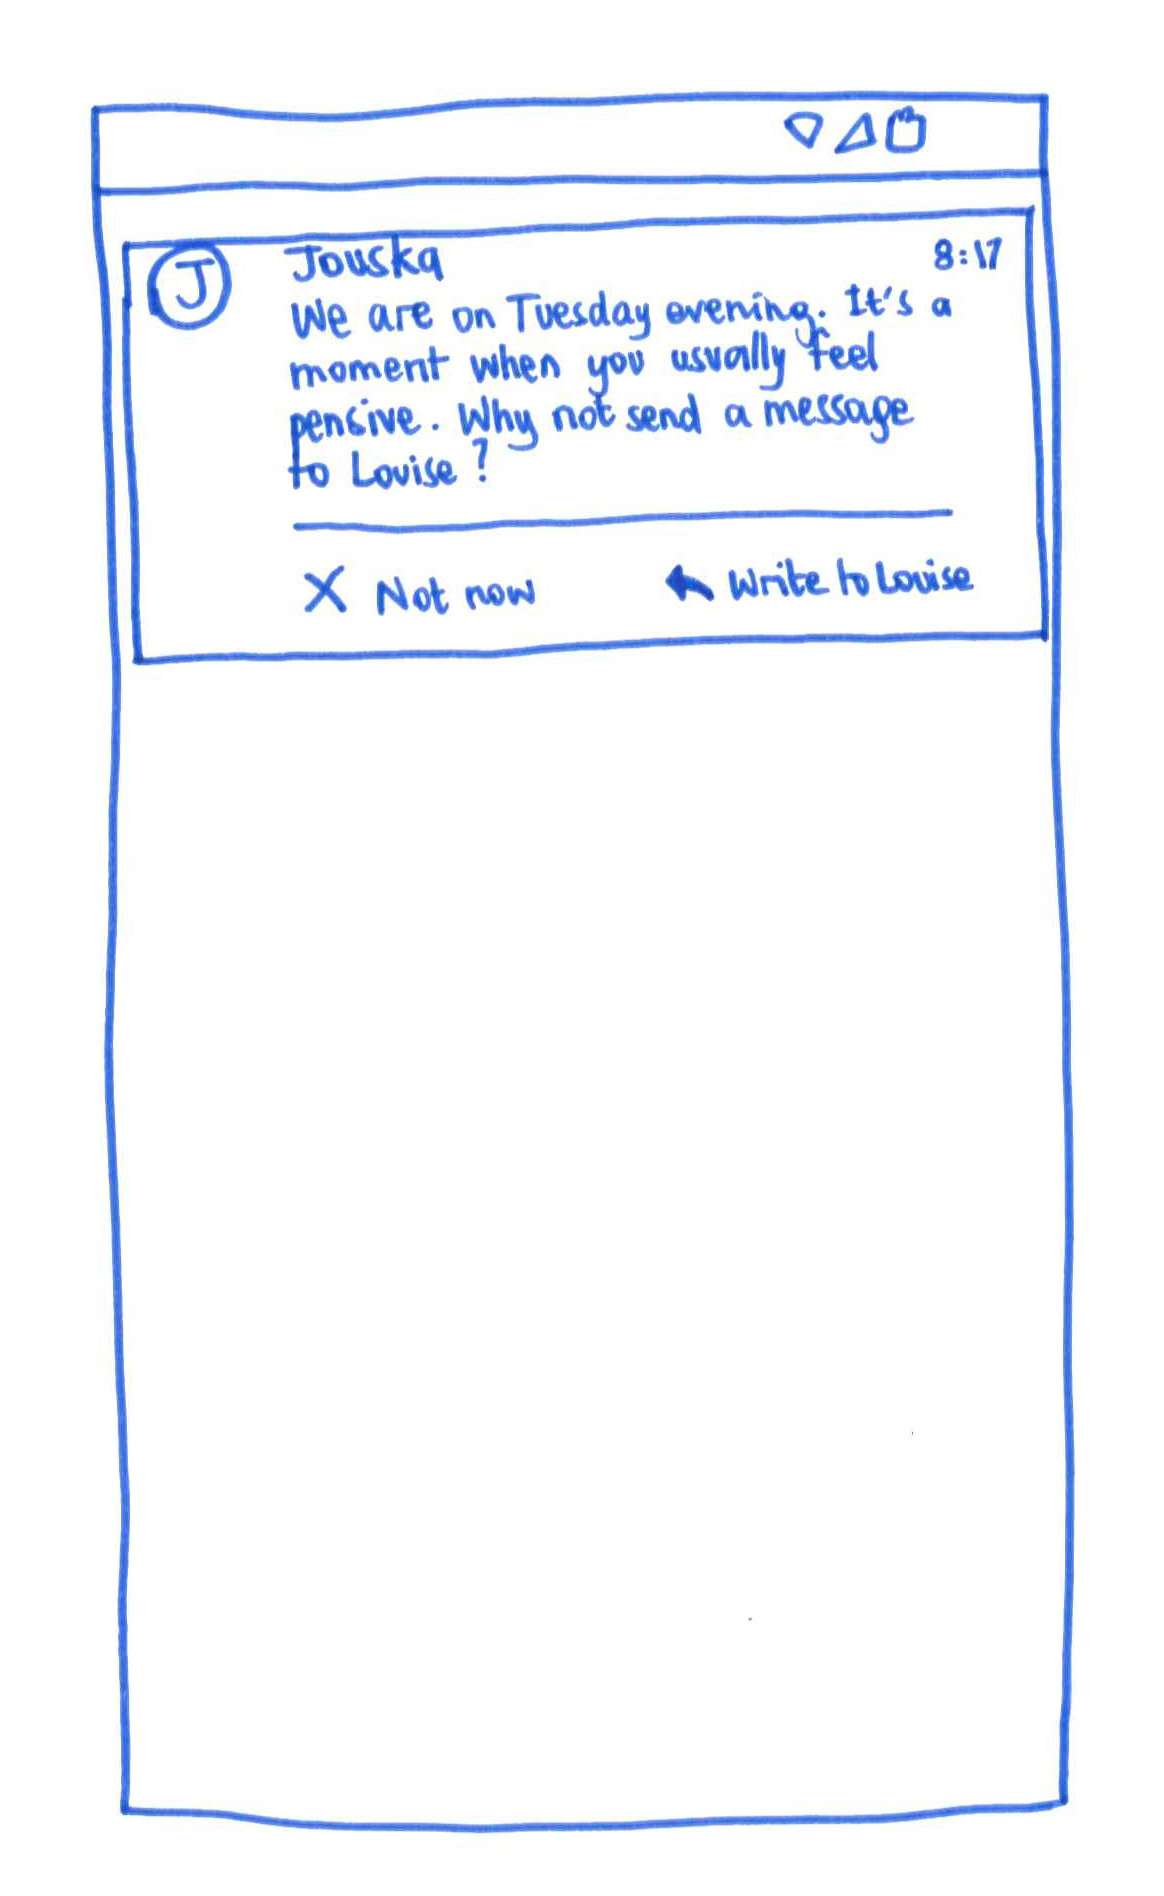 J
Jouska 8:17
We are on Tuesday evening. It's a
moment when you usually feel
pensive. Why not send a message
to Louise?
X Not now
Write to Louise